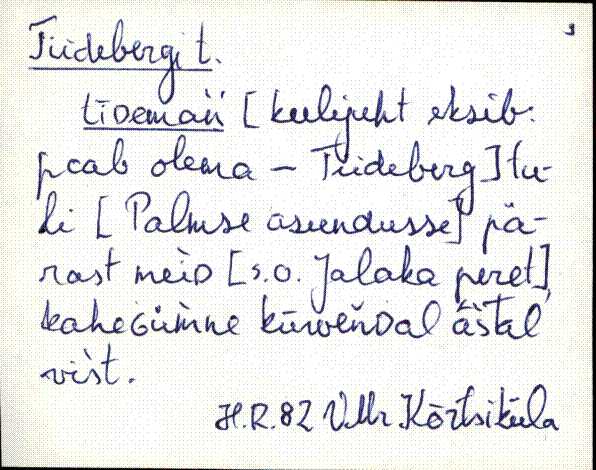 Tiidebergi t.
tīDemań [keelijuht eksib:
peab olema – Tiideberg] tu-
li [Palmse asundusse] pä-
rast meiD [s.o. Jalaka peret],
kaheGüm̀ne kūweǹDal ās̀tal
vis̀t.
H.R. 82 VMr. Kõrtsiküla